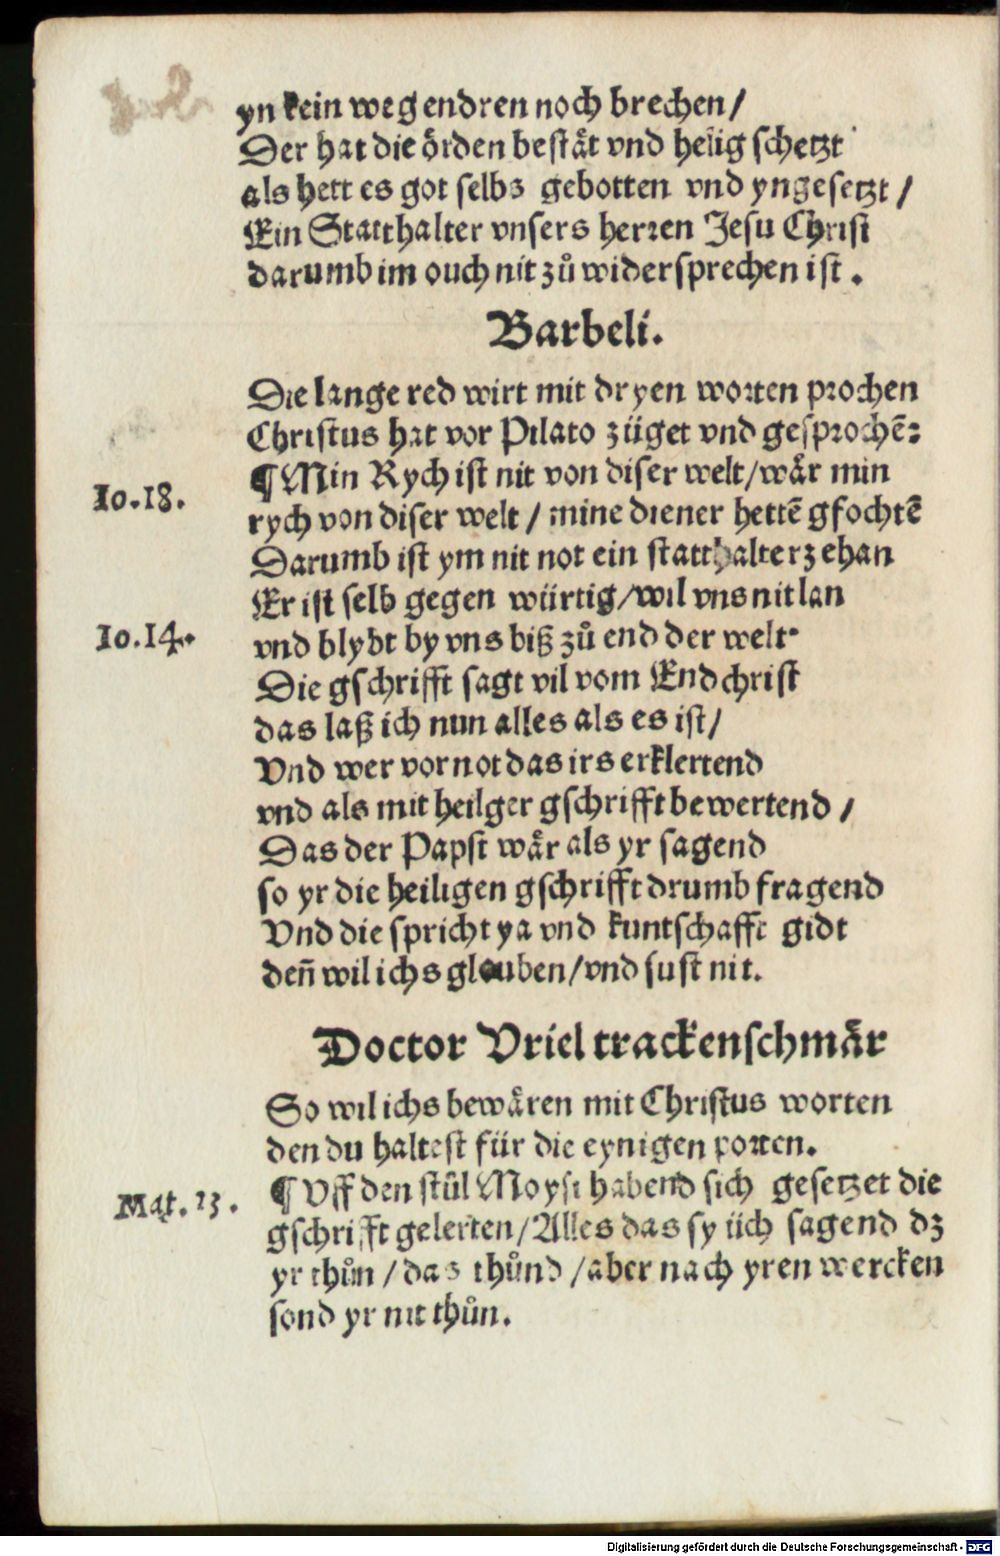 yn kein weg endren noch brechen /
Der hat die örden bestät vnd helig schetzt
als hett es got selbs gebotten vnd yngesetzt /
Ein Statthalter vnsers herren Jesu Christ
darumb im ouch nit zů widersprechen ist.
Barbeli.
Die lange red wirt mit dryen worten prochen
Christus hat vor Pilato züget vnd gesprochē:
¶ Min Rych ist nit von diser welt / wår min
Io.18. rych von diser welt / mine diener hettē gfochtē
Darumb ist ym nit not ein statthalter zehan
Er ist selb gegen würtig / wil vns nit lan
Io.14. vnd blybt by vns biß zů end der welt.
Die gschrifft sagt vil vom Endchrist
das laß ich nun alles als es ist /
Vnd wer vor not das irs erklertend
vnd als mit heilger gschrifft bewertend /
Das der Papst wår als yr sagend
so yr die heiligen gschrifft drumb fragend
Vnd die spricht ya vnd kuntschafft gidt
deñ wil ichs glouben / vnd sust nit.
Doctor Vriel trackenschmår
So wil ichs bewåren mit Christus worten
den du haltest für die eynigen porten.
Mat.23. ¶ Vff den stůl Moysi habend sich gesetzet die
gschrifft gelerten / Alles das sy üch sagend dz
yr thůn / das thůnd / aber nach yren wercken
sond yr nit thůn.
Digitalisierung gefördert durch die Deutsche Forschungsgemeinschaft - DFG